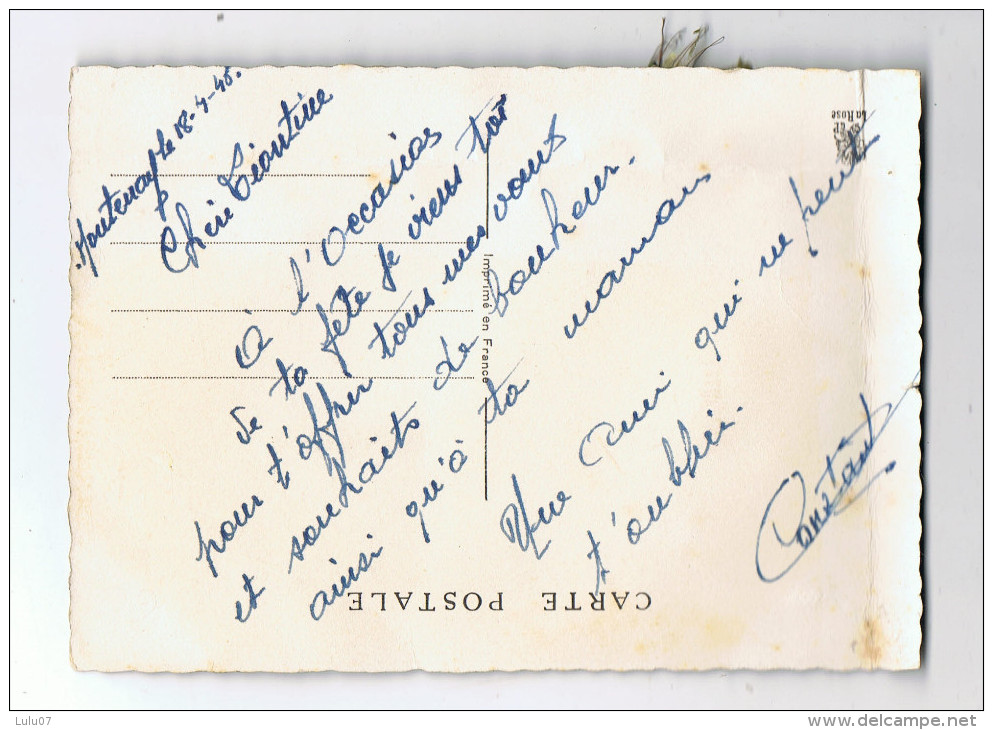 le 18-4-45.
Chère Léontine
à l'occasion
de ta fête je viens tôt
pour t'offrir tous mes vœux
et souhaits de bonheur.
ainsi qu'à ta maman
Une ami qui ne peut
t'oublier.
Constant
Imprimé en France
CARTE POSTALE
La Rose
Lulu07
www.delcampe.net